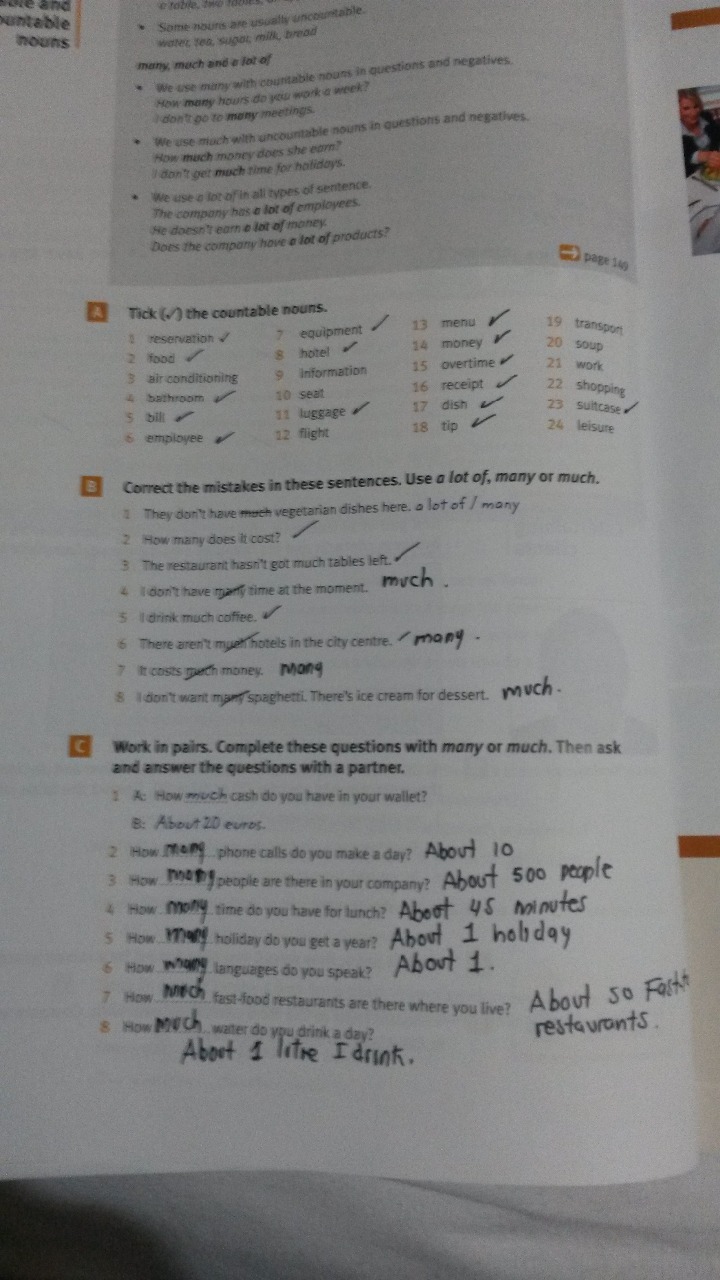 able and
ountable
nouns
a table, two tables,
• Some nouns are usually uncountable.
water, tea, sugar, milk, bread
many, much and a lot of
• We use many with countable nouns in questions and negatives.
How many hours do you work a week?
I don't go to many meetings.
• We use much with uncountable nouns in questions and negatives.
How much money does she earn?
I don't get much time for holidays.
• We use a lot of in all types of sentence.
The company has a lot of employees.
He doesn't earn a lot of money.
Does the company have a lot of products?
page 149
A Tick (✓) the countable nouns.
1 reservation ✓
2 food ✓
3 air conditioning
4 bathroom ✓
5 bill ✓
6 employee ✓
7 equipment ✓
8 hotel ✓
9 information
10 seat
11 luggage ✓
12 flight
13 menu ✓
14 money ✓
15 overtime ✓
16 receipt ✓
17 dish ✓
18 tip ✓
19 transport
20 soup
21 work
22 shopping
23 suitcase ✓
24 leisure
B Correct the mistakes in these sentences. Use a lot of, many or much.
1 They don't have much vegetarian dishes here. a lot of / many
2 How many does it cost? ✓
3 The restaurant hasn't got much tables left. ✓
4 I don't have many time at the moment. much.
5 I drink much coffee. ✓
6 There aren't much hotels in the city centre. ✓ many.
7 It costs much money. many
8 I don't want many spaghetti. There's ice cream for dessert. much.
C Work in pairs. Complete these questions with many or much. Then ask
and answer the questions with a partner.
1 A: How much cash do you have in your wallet?
B: About 20 euros.
2 How many phone calls do you make a day? About 10
3 How many people are there in your company? About 500 people
4 How many time do you have for lunch? About 45 minutes
5 How many holiday do you get a year? About 1 holiday
6 How many languages do you speak? About 1.
7 How much fast-food restaurants are there where you live? About 50 Fast
restaurants.
8 How much water do you drink a day?
About 1 litre I drink.